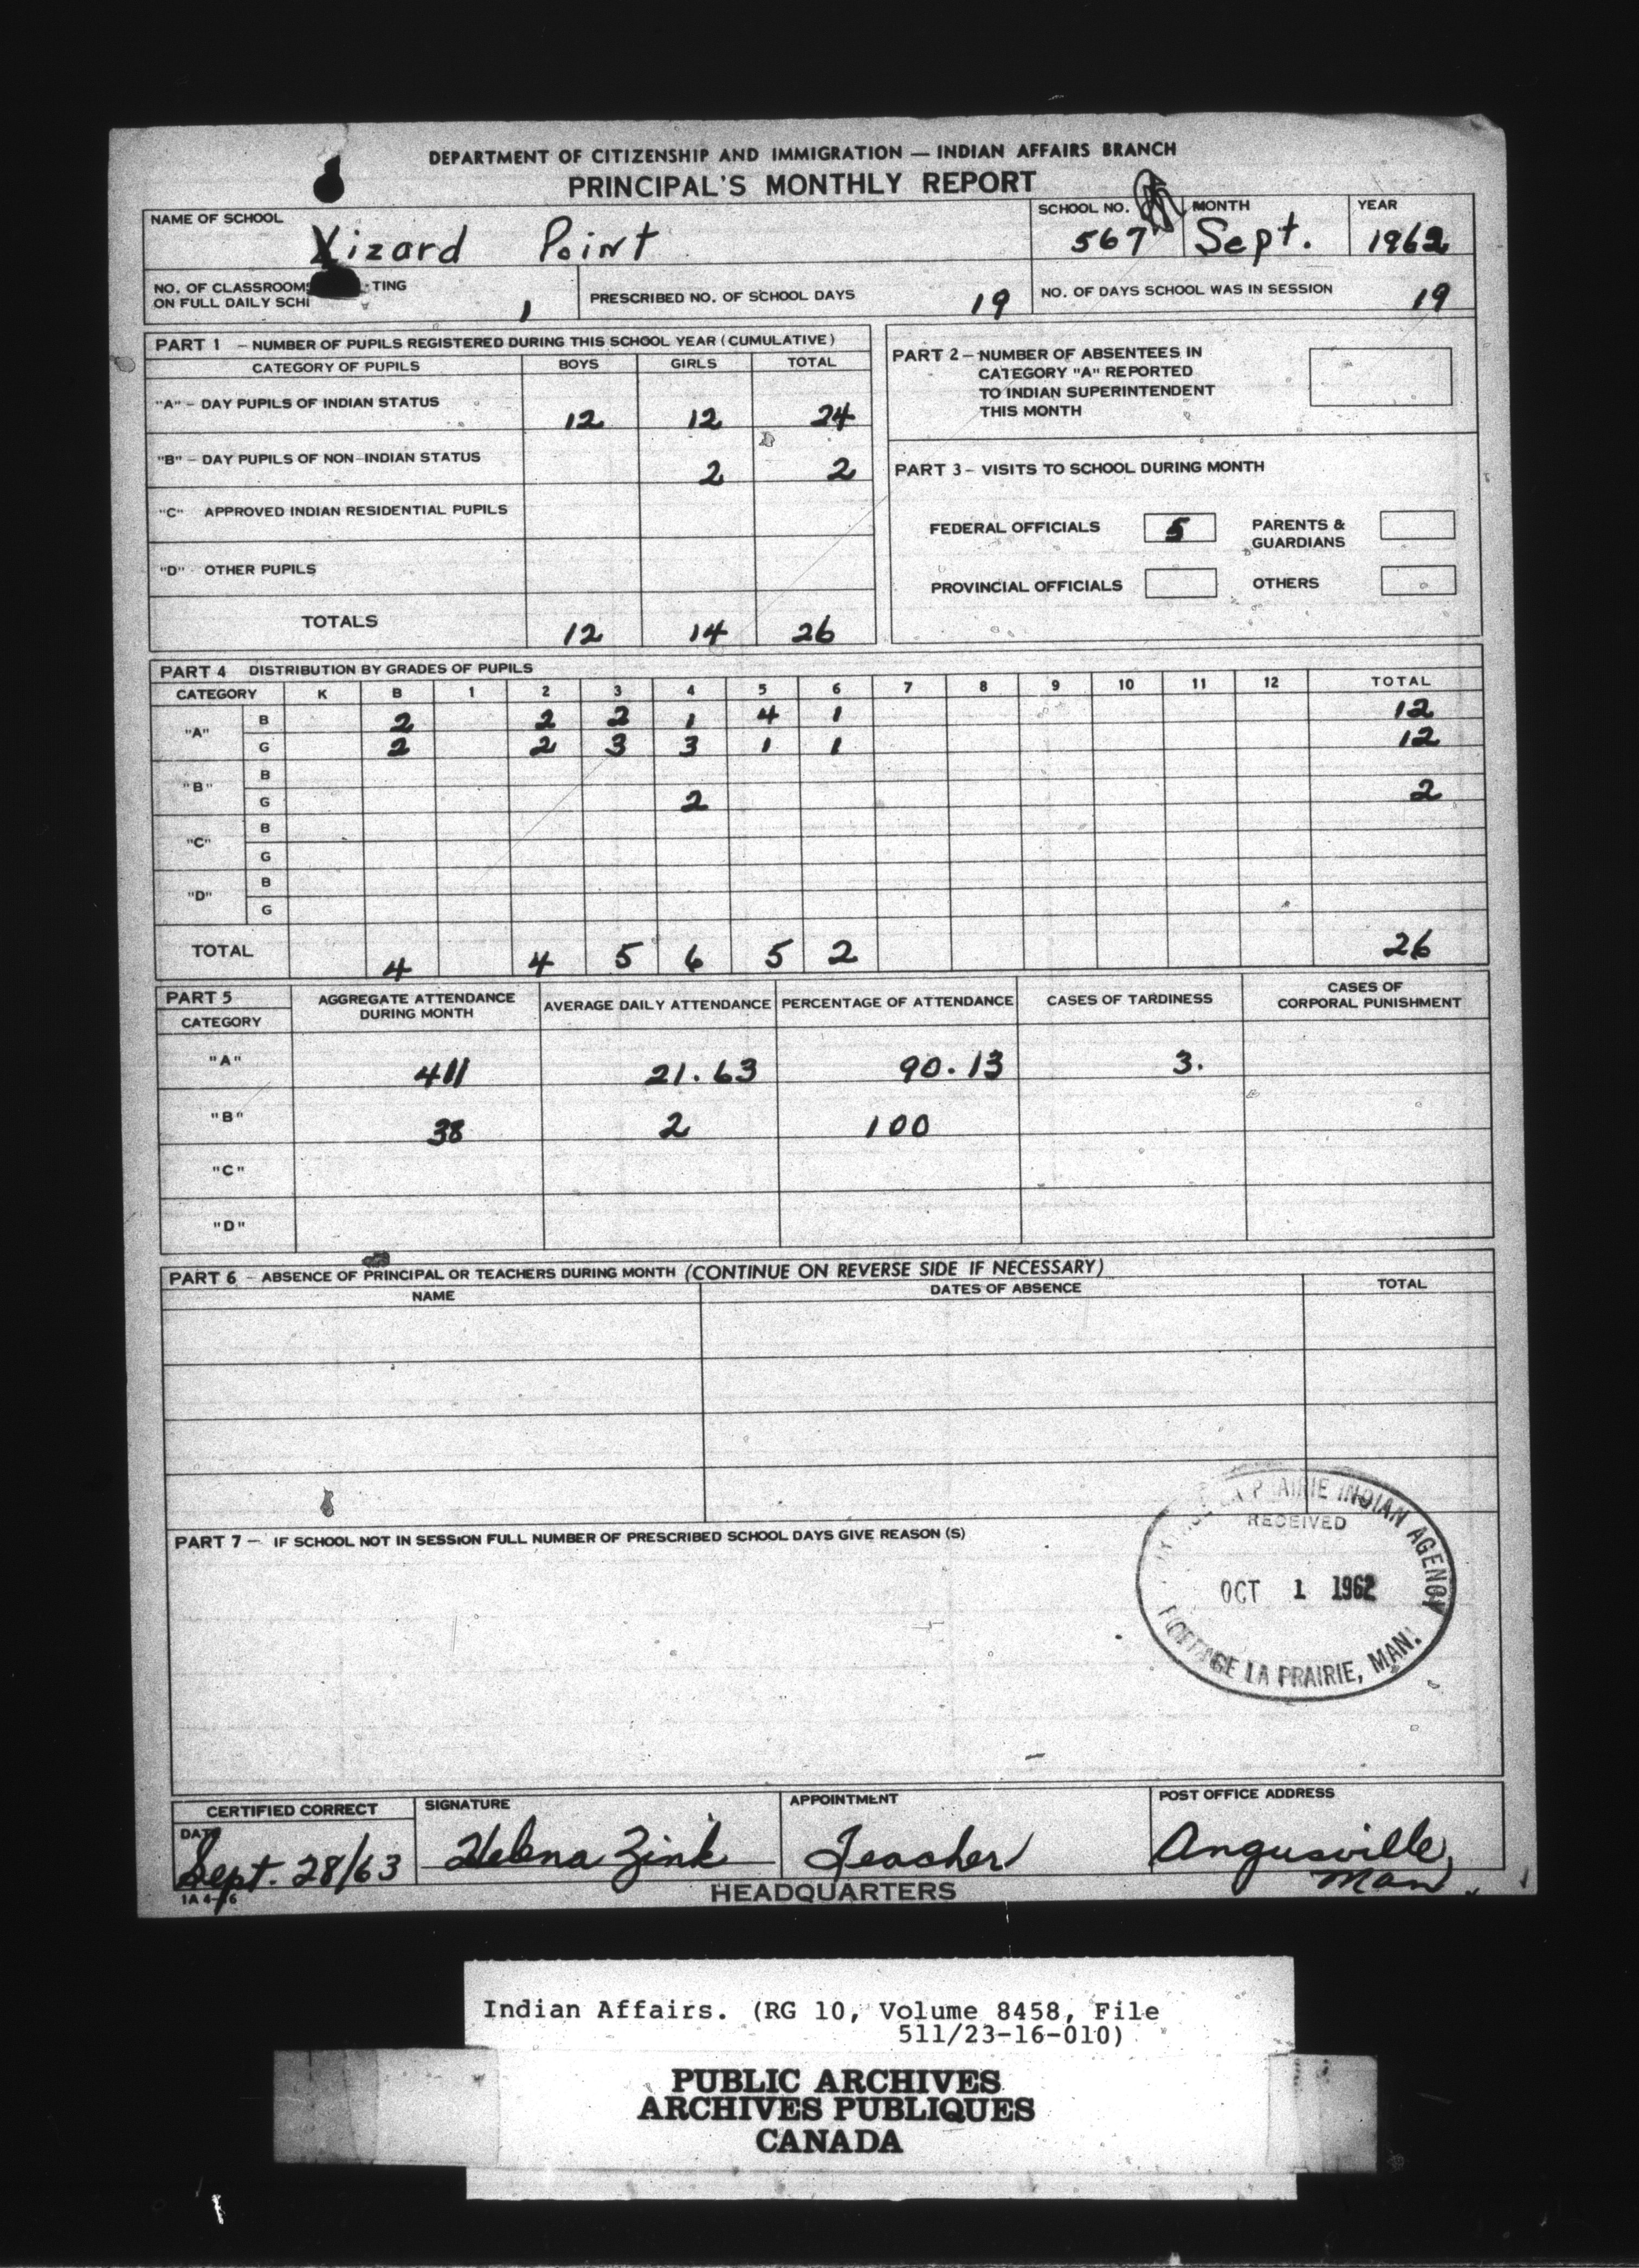 DEPARTMENT OF CITIZENSHIP AND IMMIGRATION — INDIAN AFFAIRS BRANCH
PRINCIPAL'S MONTHLY REPORT
NAME OF SCHOOL SCHOOL NO. MONTH YEAR
Lizard Point 567 Sept. 1962
NO. OF CLASSROOMS TING PRESCRIBED NO. OF SCHOOL DAYS 19 NO. OF DAYS SCHOOL WAS IN SESSION 19
ON FULL DAILY SCH 1
PART 1 – NUMBER OF PUPILS REGISTERED DURING THIS SCHOOL YEAR (CUMULATIVE)
CATEGORY OF PUPILS BOYS GIRLS TOTAL
"A" – DAY PUPILS OF INDIAN STATUS 12 12 24
"B" – DAY PUPILS OF NON-INDIAN STATUS 2 2
"C" APPROVED INDIAN RESIDENTIAL PUPILS
"D" OTHER PUPILS
TOTALS 12 14 26
PART 2 – NUMBER OF ABSENTEES IN
CATEGORY "A" REPORTED
TO INDIAN SUPERINTENDENT
THIS MONTH
PART 3 – VISITS TO SCHOOL DURING MONTH
FEDERAL OFFICIALS 5 PARENTS &
GUARDIANS
PROVINCIAL OFFICIALS OTHERS
PART 4 DISTRIBUTION BY GRADES OF PUPILS
CATEGORY K B 1 2 3 4 5 6 7 8 9 10 11 12 TOTAL
"A" B 2 2 2 1 4 1 12
G 2 2 3 3 1 1 12
"B" B
G 2 2
"C" B
G
"D" B
G
TOTAL 4 4 5 6 5 2 26
PART 5 AGGREGATE ATTENDANCE DURING MONTH AVERAGE DAILY ATTENDANCE PERCENTAGE OF ATTENDANCE CASES OF TARDINESS CASES OF CORPORAL PUNISHMENT
CATEGORY
"A" 411 21.63 90.13 3.
"B" 38 2 100
"C"
"D"
PART 6 – ABSENCE OF PRINCIPAL OR TEACHERS DURING MONTH (CONTINUE ON REVERSE SIDE IF NECESSARY)
NAME DATES OF ABSENCE TOTAL
PART 7 – IF SCHOOL NOT IN SESSION FULL NUMBER OF PRESCRIBED SCHOOL DAYS GIVE REASON (S)
LA PRAIRIE INDIAN AGENCY
RECEIVED
OCT 1 1962
PORTAGE LA PRAIRIE, MAN.
CERTIFIED CORRECT SIGNATURE APPOINTMENT POST OFFICE ADDRESS
DATE
Sept. 28/63 Helena Zink Teacher Angusville,
Man
HEADQUARTERS
Indian Affairs. (RG 10, Volume 8458, File
511/23-16-010)
PUBLIC ARCHIVES
ARCHIVES PUBLIQUES
CANADA